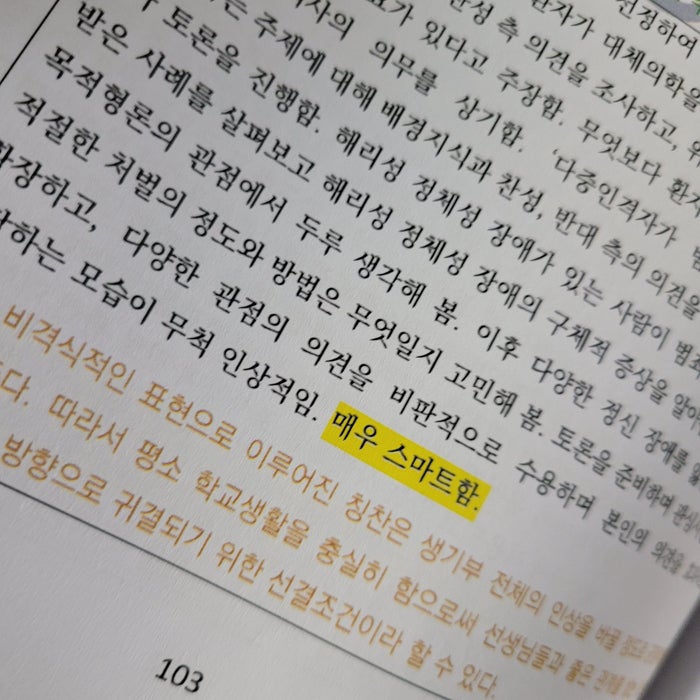 선정하여
환자가 대체의학을
찬성 측 의견을 조사하고,
가 있다고 주장함. 무엇보다 환자
의사의 의무를 상기함. '다중인격자가
는 주제에 대해 배경지식과 찬성, 반대 측의 의견을
토론을 진행함. 해리성 정체성 장애가 있는 사람이 범죄
받은 사례를 살펴보고 해리성 정체성 장애의 구체적 증상을
목적형론의 관점에서 두루 생각해 봄. 이후 다양한 정신 장애를
적절한 처벌의 정도와 방법은 무엇일지 고민해 봄. 토론을 준비하며
확장하고, 다양한 관점의 의견을 비판적으로 수용하며 본인의 의견을
하는 모습이 무척 인상적임. 매우 스마트함.
비격식적인 표현으로 이루어진 칭찬은 생기부 전체의 인상을 바꿀 정도로
다. 따라서 평소 학교생활을 충실히 함으로써 선생님들과 좋은
방향으로 귀결되기 위한 선결조건이라 할 수 있다.
103